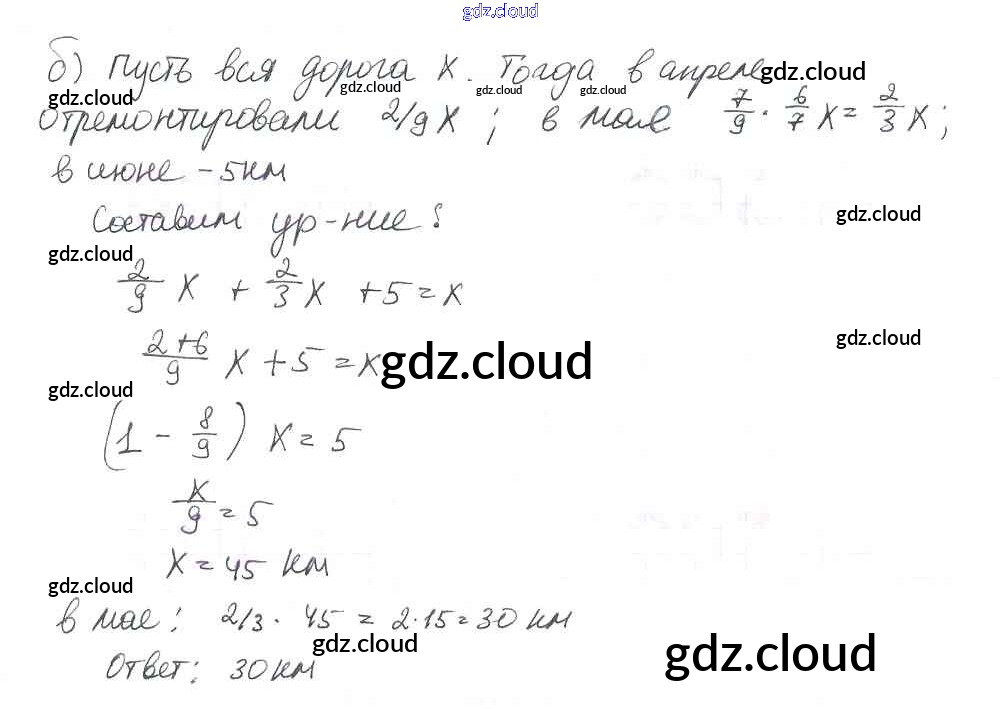 gdz.cloud
б) Пусть вся дорога x. Тогда в апреле gdz.cloud
gdz.cloud gdz.cloud gdz.cloud gdz.cloud
отремонтировали 2/9 x ; в мае 7/9 · 6/7 x = 2/3 x ;
в июне - 5 км
gdz.cloud
Составим ур-ние:
gdz.cloud
2/9 x + 2/3 x + 5 = x
gdz.cloud
2+6/9 x + 5 = x gdz.cloud
gdz.cloud
(1 - 8/9) x = 5
x/9 = 5
x = 45 км
gdz.cloud
в мае: 2/3 · 45 = 2·15 = 30 км
gdz.cloud gdz.cloud
Ответ: 30 км